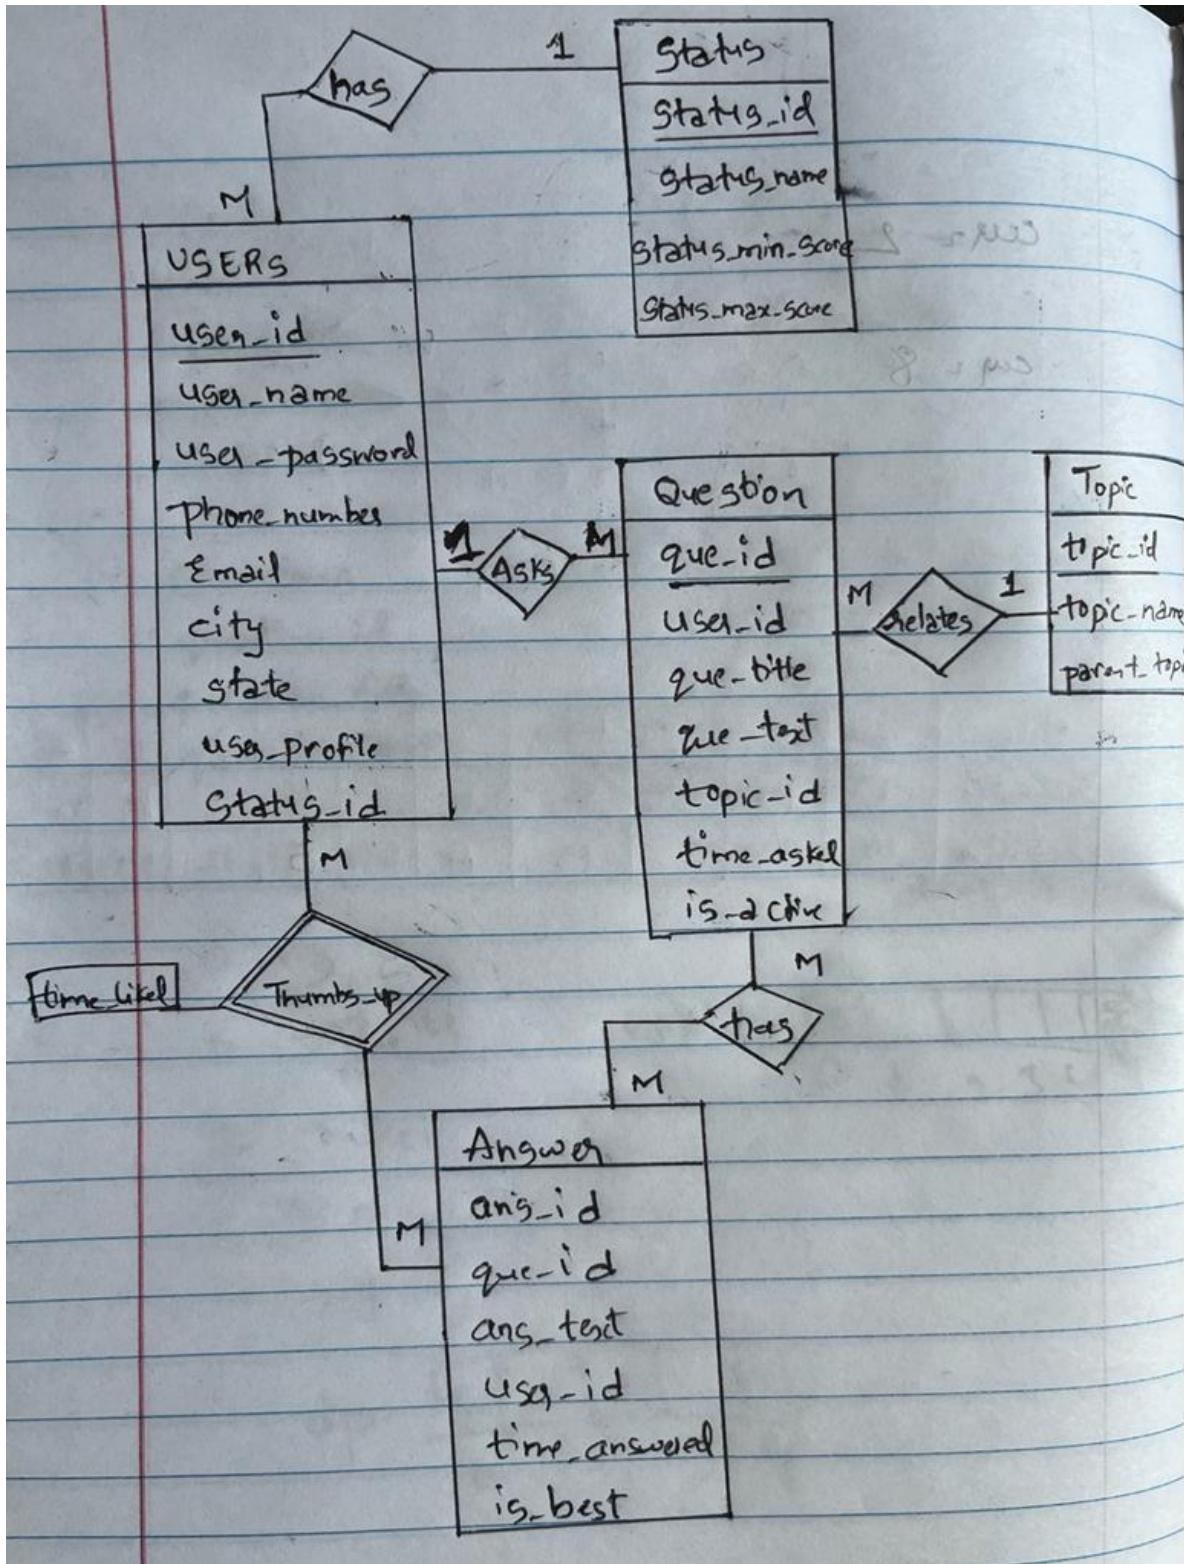 has
1
Status
status_id
status_name
status_min_score
status_max_score
M
USERS
user_id
user_name
user_password
phone_number
Email
city
state
user_profile
status_id
1
Asks
M
Question
que_id
user_id
que_title
que_text
topic_id
time_asked
is_active
M
relates
1
Topic
topic_id
topic_name
parent_topi
M
time_liked
Thumbs_up
M
has
M
M
Answer
ans_id
que_id
ans_text
user_id
time_answered
is_best